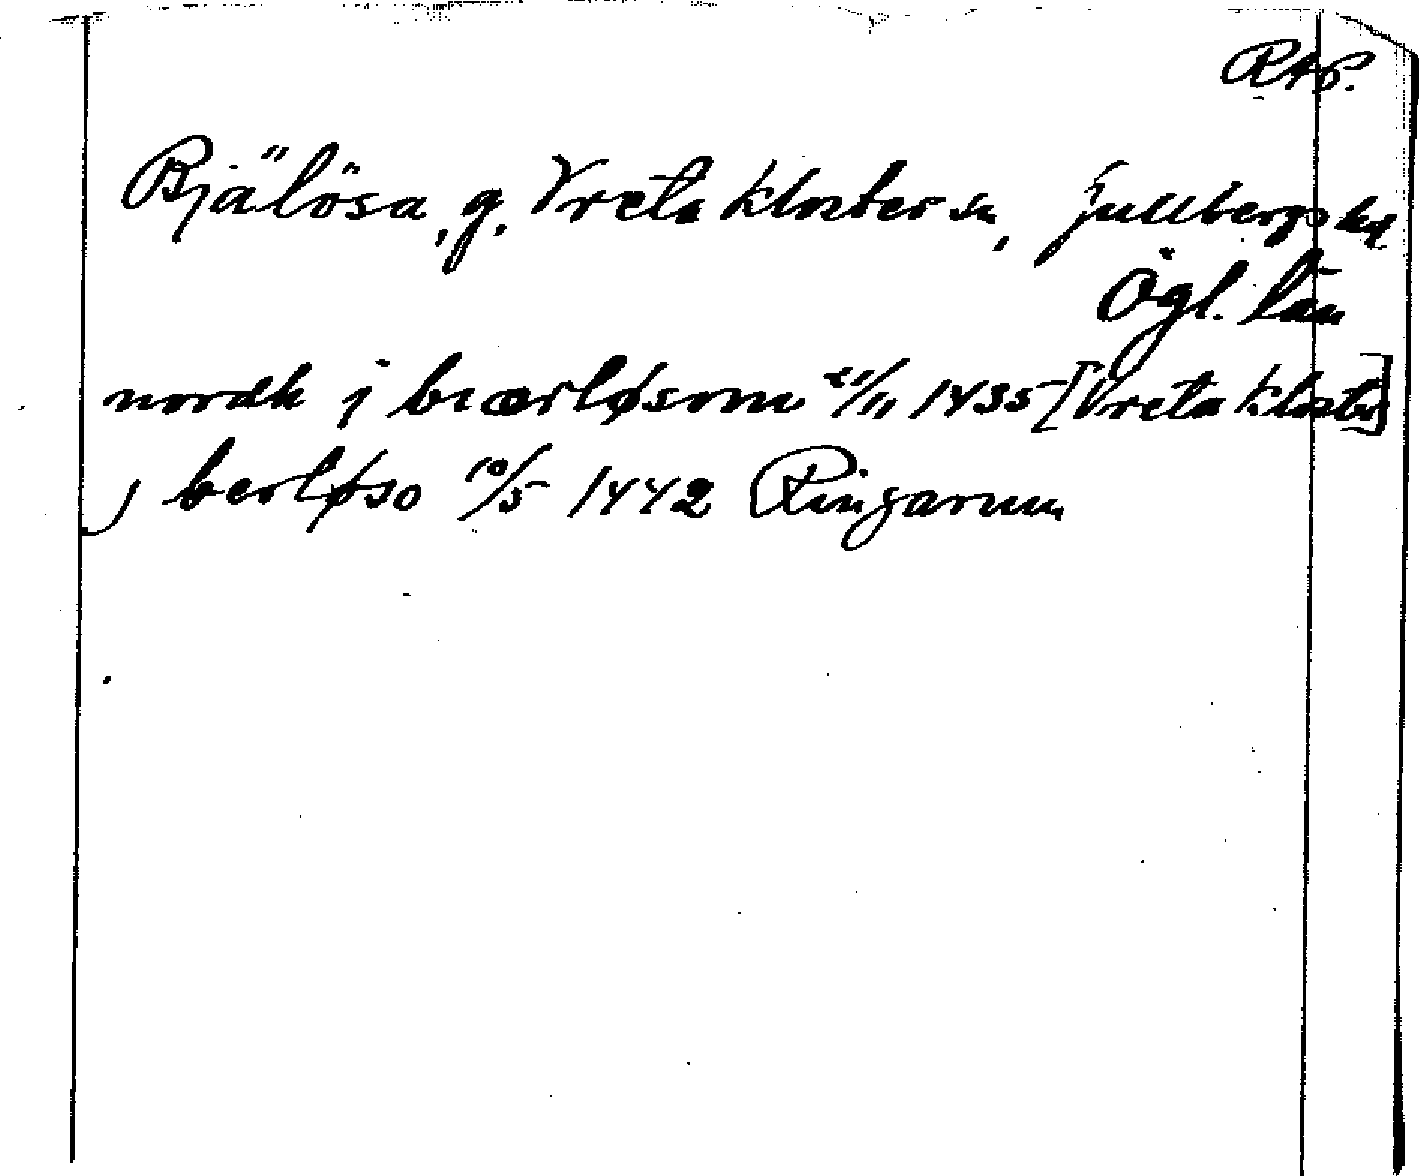 RAp.
Bjälösa, g. Vreta Kloster sn, Gullbergs hd
Ögl. län
nordh j biærløsom 21/11 1435 [Vreta Kloster]
j berløso 10/5 1442 Ringarum